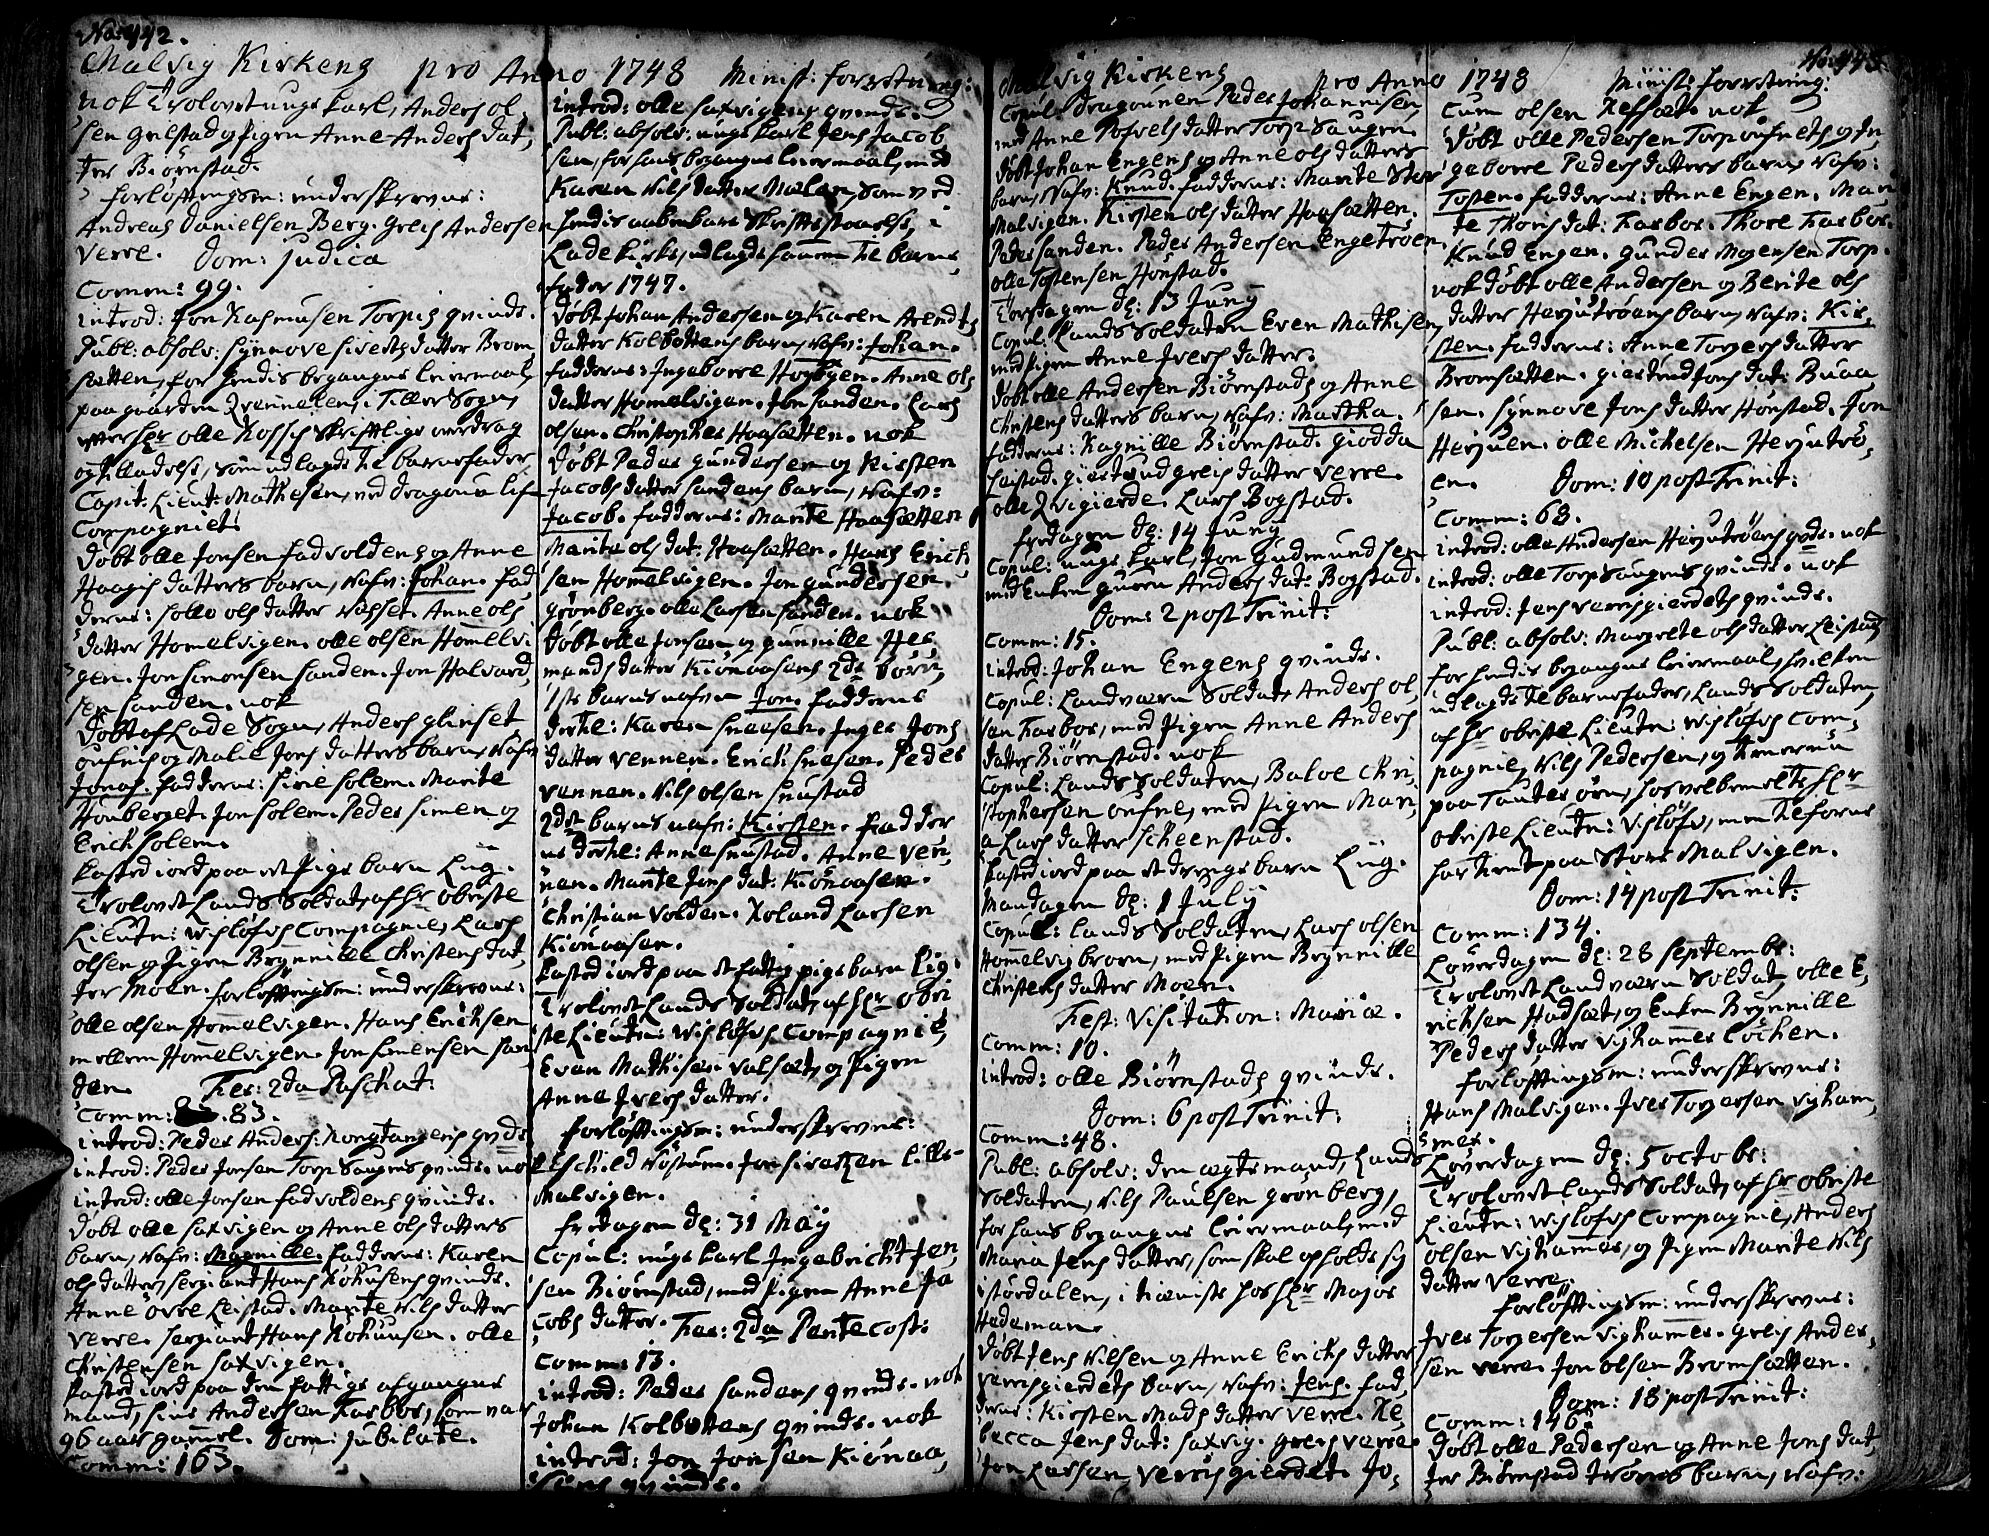 No: 442.
Malvig Kirkens pro Anno 1748 Minist: forretning:
nok Trolovet ungkarl, Anders ol,
sen Grelstad og Pigen Anne Anders dat,
ter Biørnstad.
forlofftingsm: underskrevne:
Andreas Danielsen Berg. Greis Andersen
Verre. Dom: Judica
Comm: 99.
introd: Jon Rasmusen Torpis qvinde.
Publ: absolv: Synnove Siverts datter Brom,
sætten, for hendis begangne leiermaal
paa gaarden i Tiller Sogn,
effter Hr olle skrifftlige
og tilladelse, som udlagde til barnefader
Capit: Lieut: Mathesen, ved dragoun lif
Compagniet.
Døbt olle Jonsen fadvoldens og Anne
Haagis datters barn, nafn: Johan. fad,
derne: ols datter Anne ols
datter Hommelvigen. olle olsen Hommelvi,
gen. Jon Simonsen Sanden. Jon Halvard,
sen Sanden. nok
Døbt af Lade Sogn, Anders
og Malie Jons datters barn, nafn
Jonas. fadderne: Sive Solem. Marite
Jon Solem. Peder Simen og
Erich Solem.
Kasted iord paa et Pige barn Liig.
Trolovet Lands Soldat, af Hr obriste
Lieutn: Wisløfs Compagnie, Lars
olsen og Pigen Brynnille Christens dat,
ter Moen. forlofftingsm: underskrevne:
olle olsen Hommelvigen. Hans Erichsen
mellem Hommelvigen. Jon Simensen San
den. Fer: 2da Paschat:
Comm: 83.
introd: Peder Anders: Kongtangens qvinde
introd: Peder Jonsen Torp Saugens qvinde. nok
introd: olle Jonsen fadvoldens qvinde.
Døbt olle Saxvigen og Anne ols datters
barn, nafn: Magnille. fadderne: Karen
ols datter, Sergiant Hans qvinde.
Anne övre Leistad. Marite Nils datter
Verre. Sergiant Hans olle
Christensen Saxvigen.
Kasted iord paa den fattige afgangne
mand, Siur Andersen Karbor, som var
96 aar gamel. Dom: Jubilate.
Comm: 163.
introd: olle Saxvigens qvinde.
Publ: absolv: ungkarl Jens Jacob
sen, for hans begangne leiermaal, med
Karen Nils datter Mælen, som ved
hendis aabenbare skrifftestaaelse, i
Lade Kirke, udlagde hannem til barne
fader 1747.
Døbt Johan Andersen og Karen Arendts
datter Kolbottens barn, nafn: Johan.
fadderne: Ingeborre Høybyen. Anne ols
datter Homelvigen. Jon Sanden. Lars
olsen. Christopher Haasætten. nok
Døbt Peder Gundersen og Kirsten
Jacobs datter Sandens barn, nafn:
Jacob. fadderne: Marite Haasætten
Marite ols dat: Haasætten. Hans Erich
sen Homelvigen. Jon Gundersen.
Grønberg. olle Larsen Sanden. nok
Døbt olle Jonsen og Gunnille Her
mands datter Kiönaasens 2de børn,
1ste barns nafn Jon. fadderne
dertil: Karen Sneesen. Inger Jons
datter Vennen. Erich Snesen. Peder
Vennen. Nils olsen Snustad
2det barns nafn: Kirsten. fadder
ne dertil: Anne Snustad. Anne Ven,
nen. Marite Jons dat: Kiönaasen.
Christian Volden. Roland Larsen
Kiönaasen.
Kasted iord paa et fattig pigebarn Liig.
Trolovet Lands Soldat, af Hr obri
ste Lieutn: Wisløfs Compagnie,
Even Mathisen Valsæt, og Pigen
Anne Ivers datter.
forlofftingsm: underskrevne:
Jon Sivertzen Lille
Malvigen.
fredagen d: 31 May
Copul: ungkarl Ingebricht Jen,
sen Biørnstad, med Pigen Anne Ja
cobs datter. Fer: 2da Pentecost:
Comm: 13.
introd: Peder Sandens qvinde. nok
Johan Kolbottens qvinde. nok
introd: Jon Jonsen Kiönaa,
sens qvinde.
No: 443.
Malvig Kirkens pro Anno 1748 Minist: forretning:
Copul: Dragounen Peder Johannisen,
med Anne Povels datter Torp Saugen.
Døbt Johan Engens og Anne ols datters
barn, nafn: Knud. fadderne: Marite Stor
Malvigen. Kirsten ols datter Haasætten.
Peder Sanden. Peder Andersen Engetrøen.
olle Tostensen Hønstad.
Torsdagen d: 13 Juny
Copul: Lands Soldaten Even Mathisen,
med Pigen Anne Ivers datter.
Døbt olle Andersen Biørnstads og Anne
Christens datters barn, nafn: Martha.
fadderne: Ragnille Biørnstad. Giødda
Leistad. Giertrud Greis datter Verre.
olle Qvigierde. Lars Bogstad.
fredagen d: 14 Juny
Copul: ungkarl, Jon Gudmundsen
med Enken Guren Anders dat: Bogstad.
Dom: 2 post Trinit:
Comm: 15.
introd: Johan Engens qvinde.
Copul: Landværn Soldat, Anders ol,
sen Karbor, med Pigen Anne Anders
datter Biørnstad. nok
Copul: Lands Soldaten, Baloe Chri,
stophersen onsne, med Pigen Mari,
a Lars datter Scheenstad.
Kasted iord paa et drenge barn Liig.
Mandagen d: 1 July
Copul: Lands Soldaten, Lars olsen
Homelvig broen, med Pigen Brynnille
Christens datter Moen.
Fest: Visitation: Mariæ.
Comm: 10.
introd: olle Biørnstads qvinde.
Dom: 6 post Trinit:
Comm: 48.
Publ: absolv: den ægte mand, Lands
Soldaten, Nils Paulsen Grønberg,
for hans begangne leiermaal, med
Maria Jens datter, som skal opholde sig
i Stördalen, i tieniste hos Hr Major
Hademan.
Døbt Jens Nilsen og Anne Erichs datter
Verrisgierdets barn, nafn: Jens. fad,
derne: Kirsten Mads datter Verre. Re,
becca Jens dat: Saxvig. Greis Verre.
Jon Larsen Verrisgierdet. Jo,
cum olsen Refsæt. nok
Døbt olle Pedersen Torp og In,
geborre Peders datters barn, nafn:
Tosten. fadderne: Anne Engen. Mari
te Thors dat: Karbor. Thore Karbor.
Knud Engen. Gunder Mogensen Torp.
nok døbt olle Andersen og Berite ols
datter Herjutrøens barn, nafn: Kir,
sten. fadderne: Anne Torgers datter
Bromsætten. Giertrud Jons dat: Buaa
sen. Synnove Jons datter Hønstad. Jon
Herjuen. olle Michelsen Herjutrö,
en. Dom: 10 post Trinit:
Comm: 68.
introd: olle Andersen Herjutrøens qvde. nok
introd: olle Torp Saugens qvinde. nok
introd: Jens Verrisgierdets qvinde.
Publ: absolv: Margrete ols datter Leistad,
for hendis begangne leiermaal, hvilken
udlagde til barnefader, Lands Soldaten,
af Hr obriste Lieutn: Wisløfs Com,
pagnie, Nils Pedersen,
paa Tauterøen, hos velbemelte Hr
obriste Lieutn: Wisløfs, men tilforne
har tient paa Store Malvigen.
Dom: 14 post Trinit:
Comm: 134.
Løverdagen d: 28 Septembr:
Trolovet Landværn Soldat, olle E,
richsen Hadsæt, og Enken Brynnille
Peders datter Vighammer Löchen.
forlofftingsm: underskrevne:
Hans Malvigen. Iver Torgersen Vigham,
mer.
Løverdagen d: 5 octobr:
Trolovet Lands Soldat, af Hr obriste
Lieutn: Wisløfs Compagnie, Anders
olsen Vighamer, og Pigen Marite Nils
datter Verre.
forlofftingsm: underskrevne:
Iver Torgersen Vighamer. Greis Ander,
sen Verre. Jon olsen Bromsætten.
Dom: 18 post Trinit:
Comm: 146.
Døbt olle Pedersen og Anne Jons dat,
ter Biørnstad trøens barn, nafn: